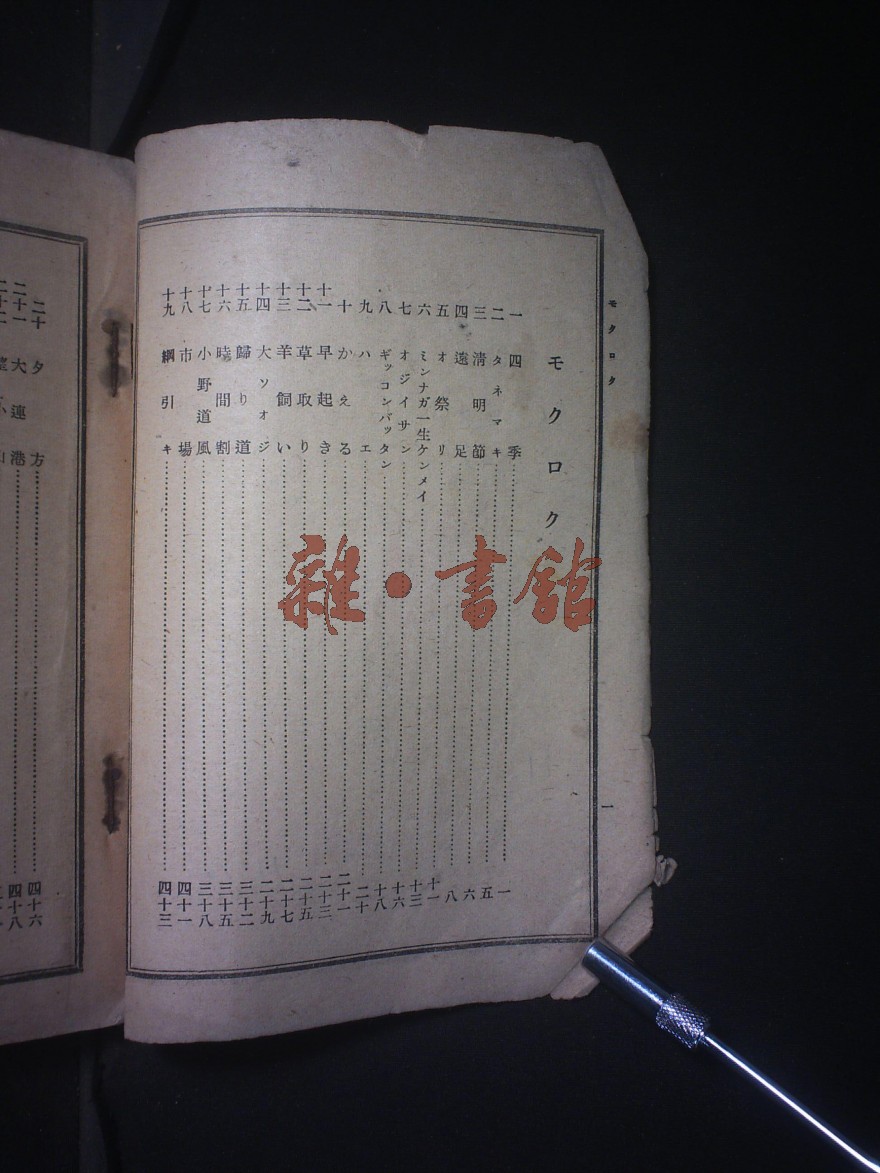 モクロク
モクロク
一 四季 一
二 タネマキ 五
三 淸明節 六
四 遠足 八
五 オ祭リ 十一
六 ミンナガ一生ケンメイ 十三
七 オジイサン 十六
八 ギッコンバッタン 十八
九 ハエ 二十
十 かえる 二十一
十一 早起き 二十三
十二 草取り 二十五
十三 羊飼い 二十七
十四 大ソオジ 二十九
十五 歸り道 三十二
十六 時間割 三十五
十七 小野道風 三十八
十八 市場 四十一
十九 綱引キ 四十三
一
二十 夕方 四十六
二十一 大連港 四十八
雜·書館